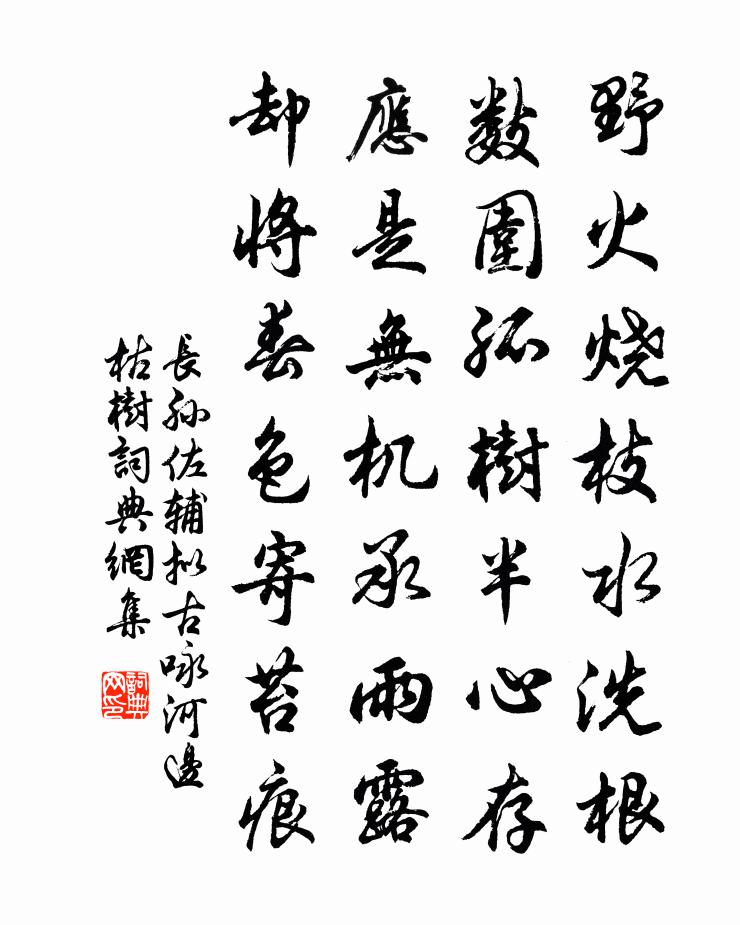 野火烧枝水洗根
数圍孤樹半心存
應是無机承雨露
却将春色寄苔痕
長孙佐辅拟古咏河邊
枯樹詞典網集
詞典网印